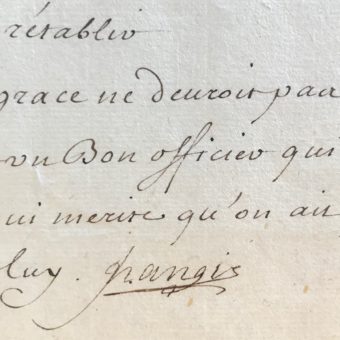 rétablir
grace ne devroit pas
un Bon officier qui
ui merite qu'on ait
luy. Nangis